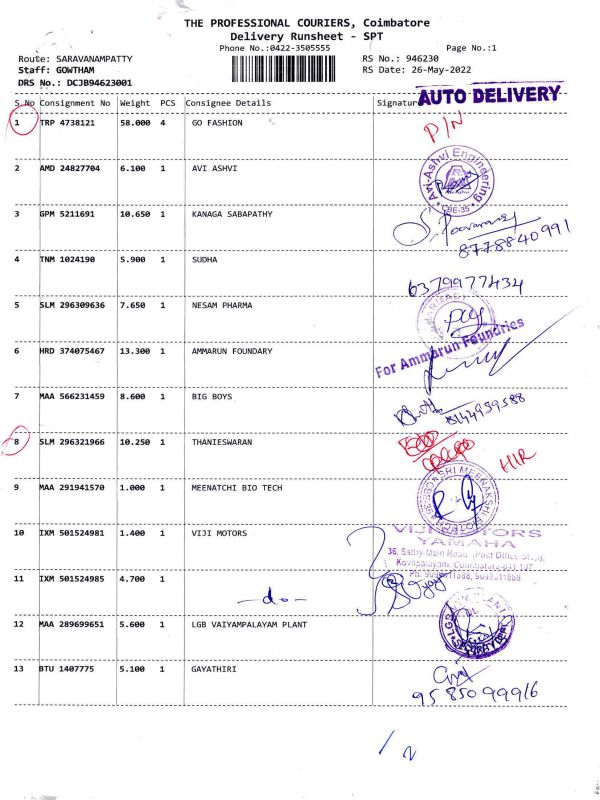 THE PROFESSIONAL COURIERS, Coimbatore
Delivery Runsheet - SPT
Phone No.:0422-3505555
Page No.:1
Route: SARAVANAMPATTY
RS No.: 946230
Staff: GOWTHAM
RS Date: 26-May-2022
DRS No.: DCJB94623001
AUTO DELIVERY
S.No Consignment No Weight PCS Consignee Details Signature
1 TRP 4738121 58.000 4 GO FASHION P/N
2 AMD 24827704 6.100 1 AVI ASHVI
Avi-Ashvi Engineering
CBE-35
3 GPM 5211691 10.650 1 KANAGA SABAPATHY
8778840991
4 TNM 1024190 5.900 1 SUDHA
6379977434
5 SLM 296309636 7.650 1 NESAM PHARMA
6 HRD 374075467 13.300 1 AMMARUN FOUNDARY
For Ammarun Foundries
7 MAA 566231459 8.600 1 BIG BOYS
8144959588
8 SLM 296321966 10.250 1 THANIESWARAN
HIR
9 MAA 291941570 1.000 1 MEENATCHI BIO TECH
SRI MEENAKSHI BIOTECH
10 IXM 501524981 1.400 1 VIJI MOTORS
VIJI MOTORS
YAMAHA
36, Sathy Main Road, (Post Office
Kovilpalayam, Coimbatore-641 107
11 IXM 501524985 4.700 1
-do-
12 MAA 289699651 5.600 1 LGB VAIYAMPALAYAM PLANT
13 BTU 1407775 5.100 1 GAYATHIRI
9585099916